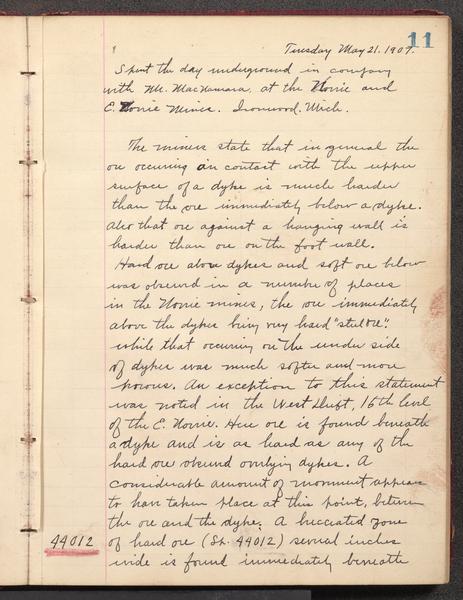 11
Tuesday May 21. 1907.
Spent the day underground in company
with Mr. MacNamara, at the Norrie and
E. Norrie Mines. Ironwood, Mich.
The miners state that in general the
ore occuring in contact with the upper
surface of a dyke is much harder
than the ore immediately below a dyke.
Also that ore against a hanging wall is
harder than ore on the foot wall.
Hard ore above dykes and soft ore below
was observed in a number of places
in the Norrie mines, the ore immediately
above the dykes being very hard "steel ore".
while that occuring on the under side
of dykes was much softer and more
porous. An exception to this statement
was noted in the West Drift, 16th level
of the E. Norrie. Here ore is found beneath
a dyke and is as hard as any of the
hard ore observed overlying dykes. A
considerable amount of movement appears
to have taken place at this point, between
the ore and the dyke. A brecciated zone
44012 of hard ore (Sp. 44012) several inches
wide is found immediately beneath